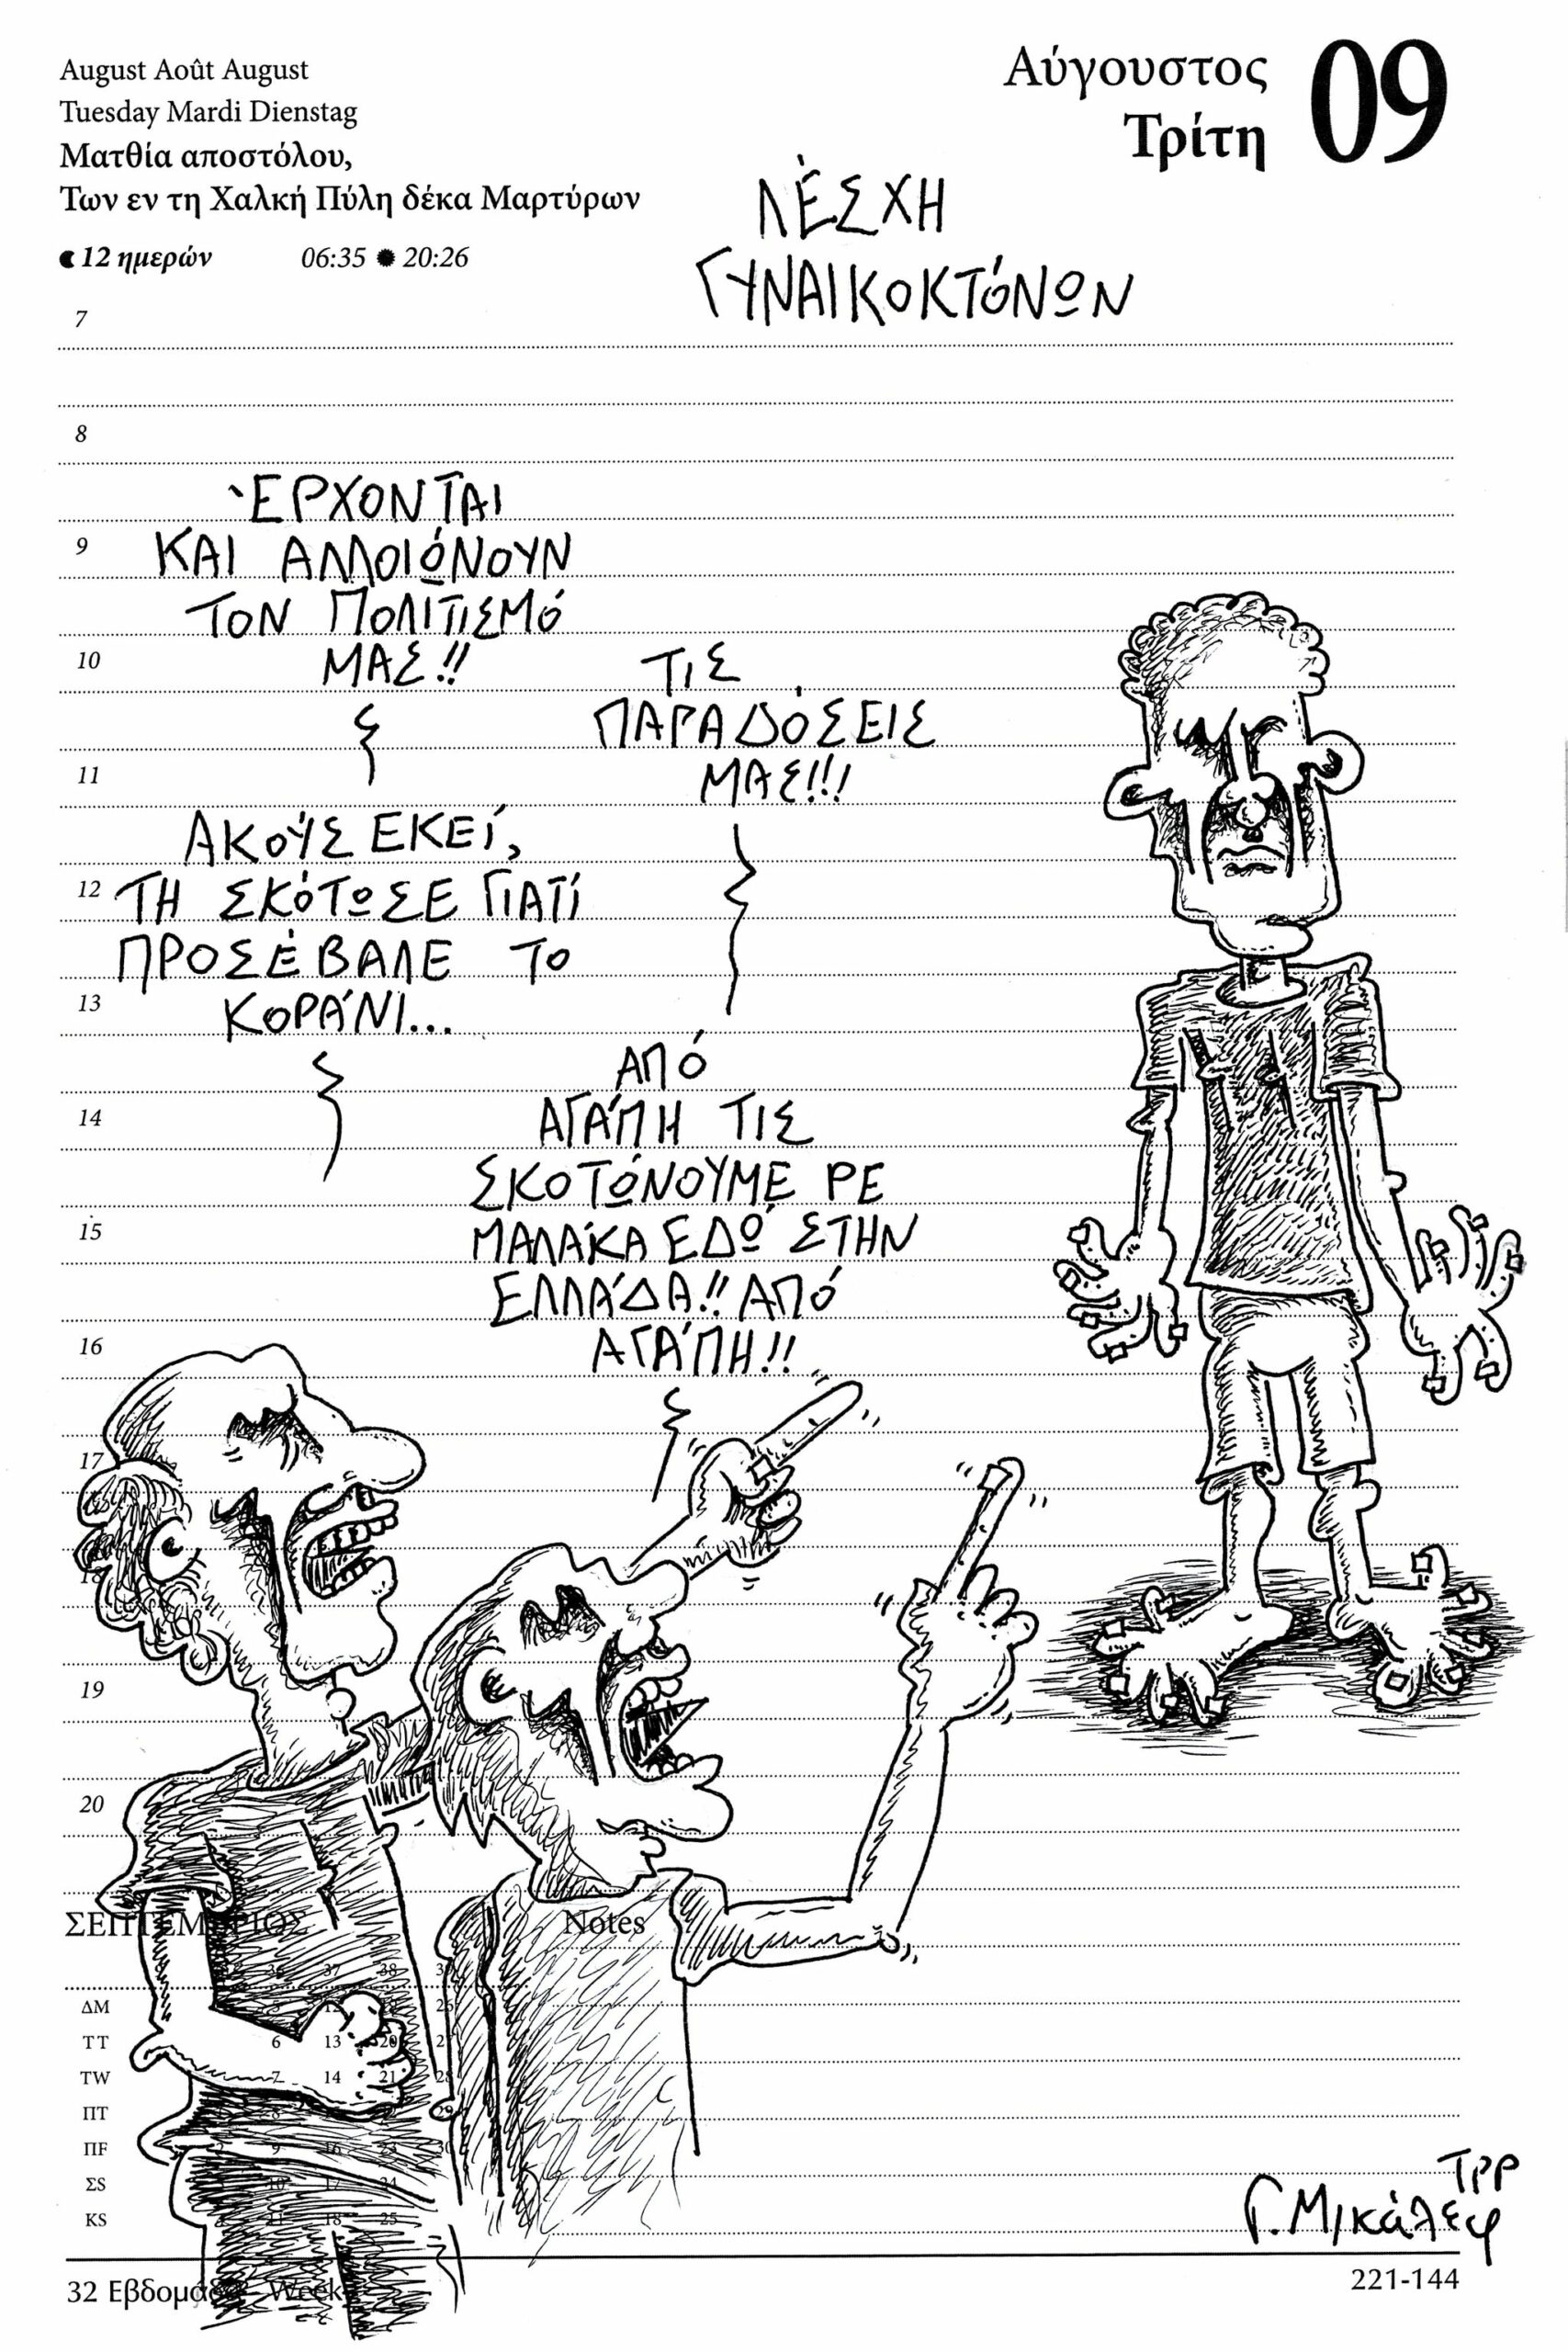 August Août August
Tuesday Mardi Dienstag
Ματθία αποστόλου,
Των εν τη Χαλκή Πύλη δέκα Μαρτύρων
12 ημερών 06:35 20:26
Αύγουστος
Τρίτη
09
ΛΈΣΧΗ
ΓΥΝΑΙΚΟΚΤΌΝΩΝ
7
8
9
10
11
12
13
14
15
16
17
18
19
20
ΈΡΧΟΝΤΑΙ
ΚΑΙ ΑΛΛΟΙΏΝΟΥΝ
ΤΟΝ ΠΟΛΙΤΙΣΜΌ
ΜΑΣ!!
ΤΙΣ
ΠΑΡΑΔΌΣΕΙΣ
ΜΑΣ!!!
ΑΚΟΎΣ ΕΚΕΊ,
ΤΗ ΣΚΌΤΩΣΕ ΓΙΑΤΊ
ΠΡΟΣΈΒΑΛΕ ΤΟ
ΚΟΡΆΝΙ...
ΑΠΌ
ΑΓΆΠΗ ΤΙΣ
ΣΚΟΤΏΝΟΥΜΕ ΡΕ
ΜΑΛΆΚΑ ΕΔΏ ΣΤΗΝ
ΕΛΛΆΔΑ!! ΑΠΌ
ΑΓΆΠΗ!!
ΣΕΠΤΕΜΒΡΙΟΣ
Notes
36 37 38 39
ΔΜ 5 12 19 26
ΤΤ 6 13 20 27
ΤW 7 14 21 28
ΠΤ 1 8 29
ΠF 2 9 16 23 30
ΣS 10 17 24
ΚS 11 18 25
ΤΡΡ
Γ. Μικάλεφ
32 Εβδομάδα Week
221-144